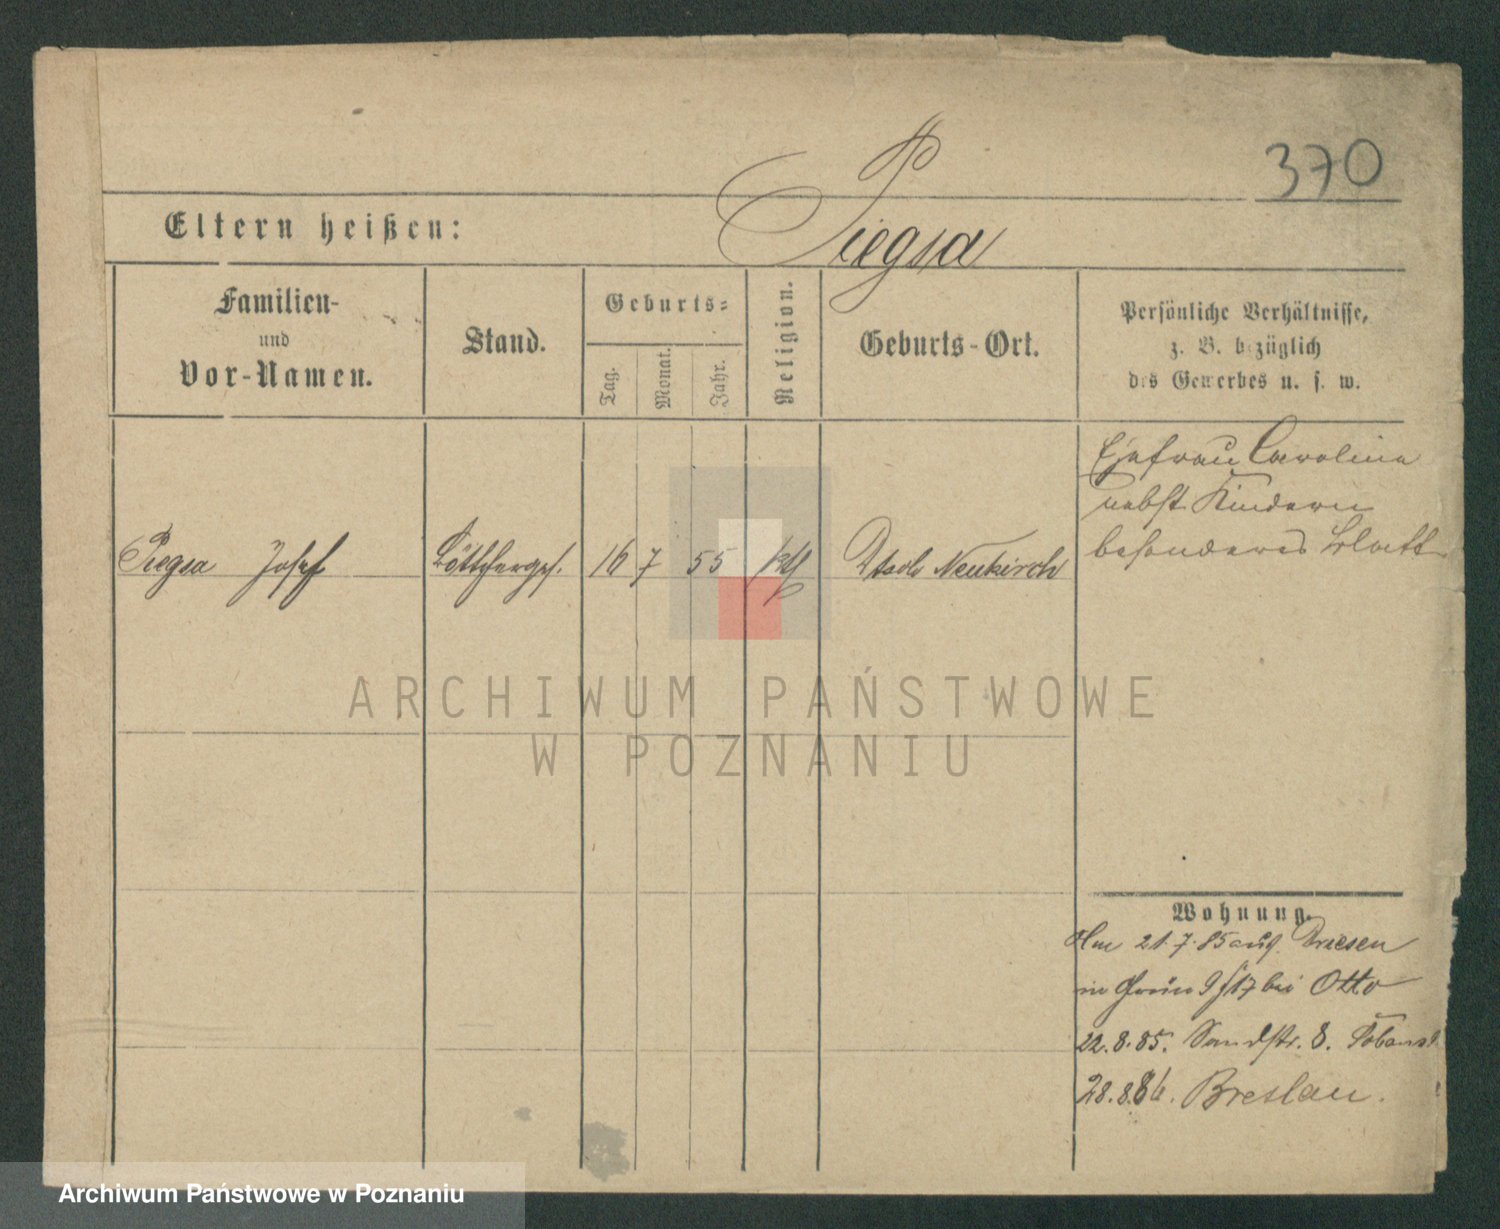 370
Eltern heißen: Piegsa
Familien-
und
Vor-Namen.
Stand.
Geburts-
Tag.
Monat.
Jahr.
Religion.
Geburts-Ort.
Persönliche Verhältnisse,
z. B. bezüglich
des Gewerbes u. s. w.
Ehefrau Caroline
nebst Kindern
besonderes Blatt
Piegsa Josef Böttcherges. 16 7 55 kth Dtsch Neukirch
Wohnung.
Am 21.7.85 aus Driesen
in 9/17 bei Otto
22.8.85. Sandstr. 8.
28.8.86. Breslau.
ARCHIWUM PAŃSTWOWE
W POZNANIU
Archiwum Państwowe w Poznaniu